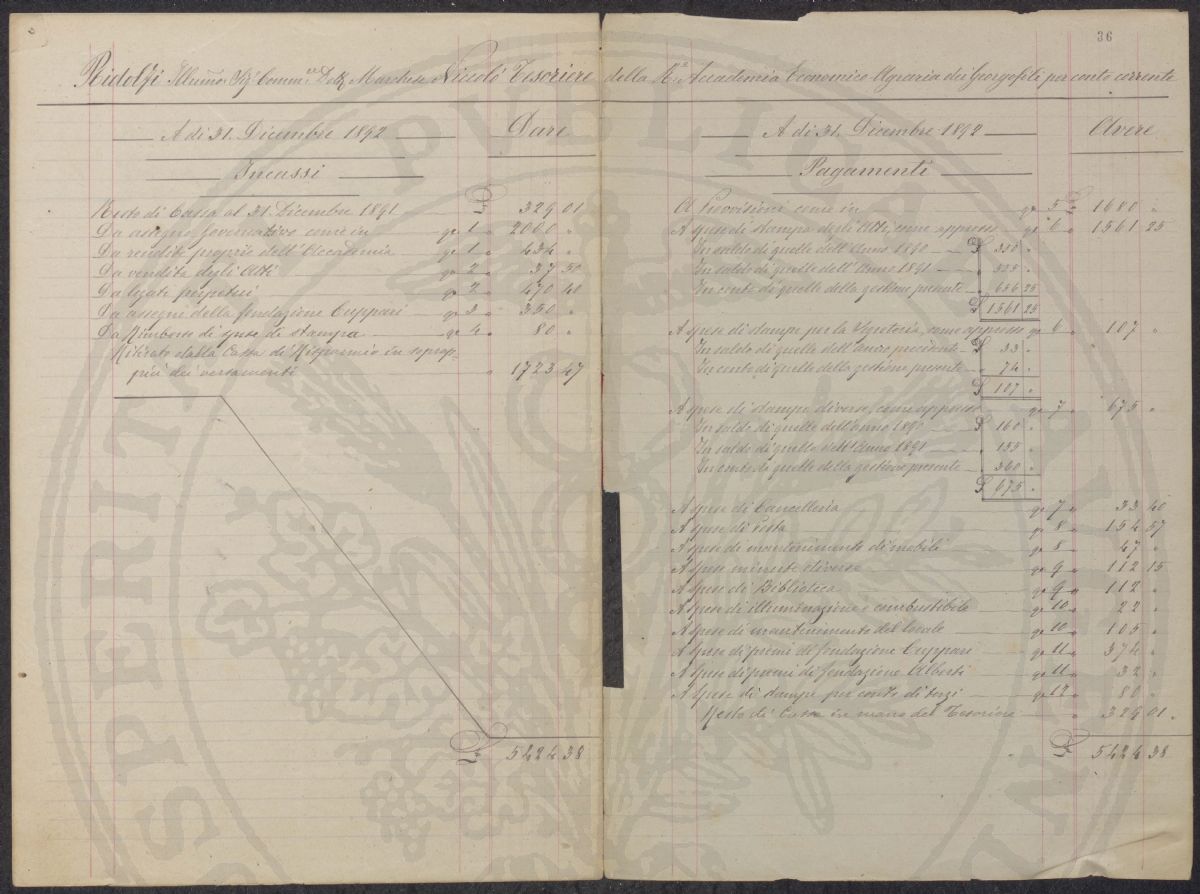 36
Ridolfi Illmo. Sig. Comm.re Dott. Marchese Niccolò Tesoriere della R.a Accademia Economico-Agraria dei Georgofili per conto corrente
A di 31. Dicembre 1892 Dare
Incassi
Resto di Cassa al 31. Dicembre 1891 £ 329 01
Da assegno governativo come in qo 1 " 2000 "
Da rendite proprie dell'Accademia qo 1 " 434 "
Da vendita degli Atti qo 2 " 37 50
Da legati perpetui qo 2 " 470 40
Da assegni della fondazione Cuppari qo 3 " 350 "
Da Rimborso di spese di stampa qo 4 " 80 "
Ritirato dalla Cassa di Risparmio in sprop-
più dei versamenti " 1723 47
£ 5424 38
A di 31. Dicembre 1892 Avere
Pagamenti
A Provvisioni come in qo 5 £ 1680 "
A spese di stampa degli Atti, come appresso qo 6 " 1561 25
In saldo di quelle dell'Anno 1890 £
In saldo di quelle dell'Anno 1891 "
In conto di quelle della gestione presente " 656 25
£ 1561 25
A spese di stampe per la Segreteria, come appresso qo 6 " 107 "
In saldo di quelle dell'anno precedente £ 33 "
In conto di quelle della gestione presente " 74 "
£ 107 "
A spese di stampe diverse, come appresso qo 7 " 675 "
In saldo di quelle dell'anno 1890 £ 160 "
In saldo di quelle dell'Anno 1891 " 155 "
In conto di quelle della gestione presente " 360 "
£ 675 "
A spese di Cancelleria qo 7 " 33 40
A spese di Posta qo 8 " 154 57
A spese di mantenimento di mobili qo 8 " 47 "
A spese minute diverse qo 9 " 112 15
A spese di Biblioteca qo 9 " 112 "
A spese di illuminazione e combustibile qo 10 " 22 "
A spese di mantenimento del locale qo 10 " 105 "
A spese di premi di fondazione Cuppari qo 11 " 374 "
A spese di premi di fondazione Alberti qo 11 " 32 "
A spese di stampe per conto di terzi qo 12 " 80 "
Resto di Cassa in mano del Tesoriere " 329 01
£ 5424 38